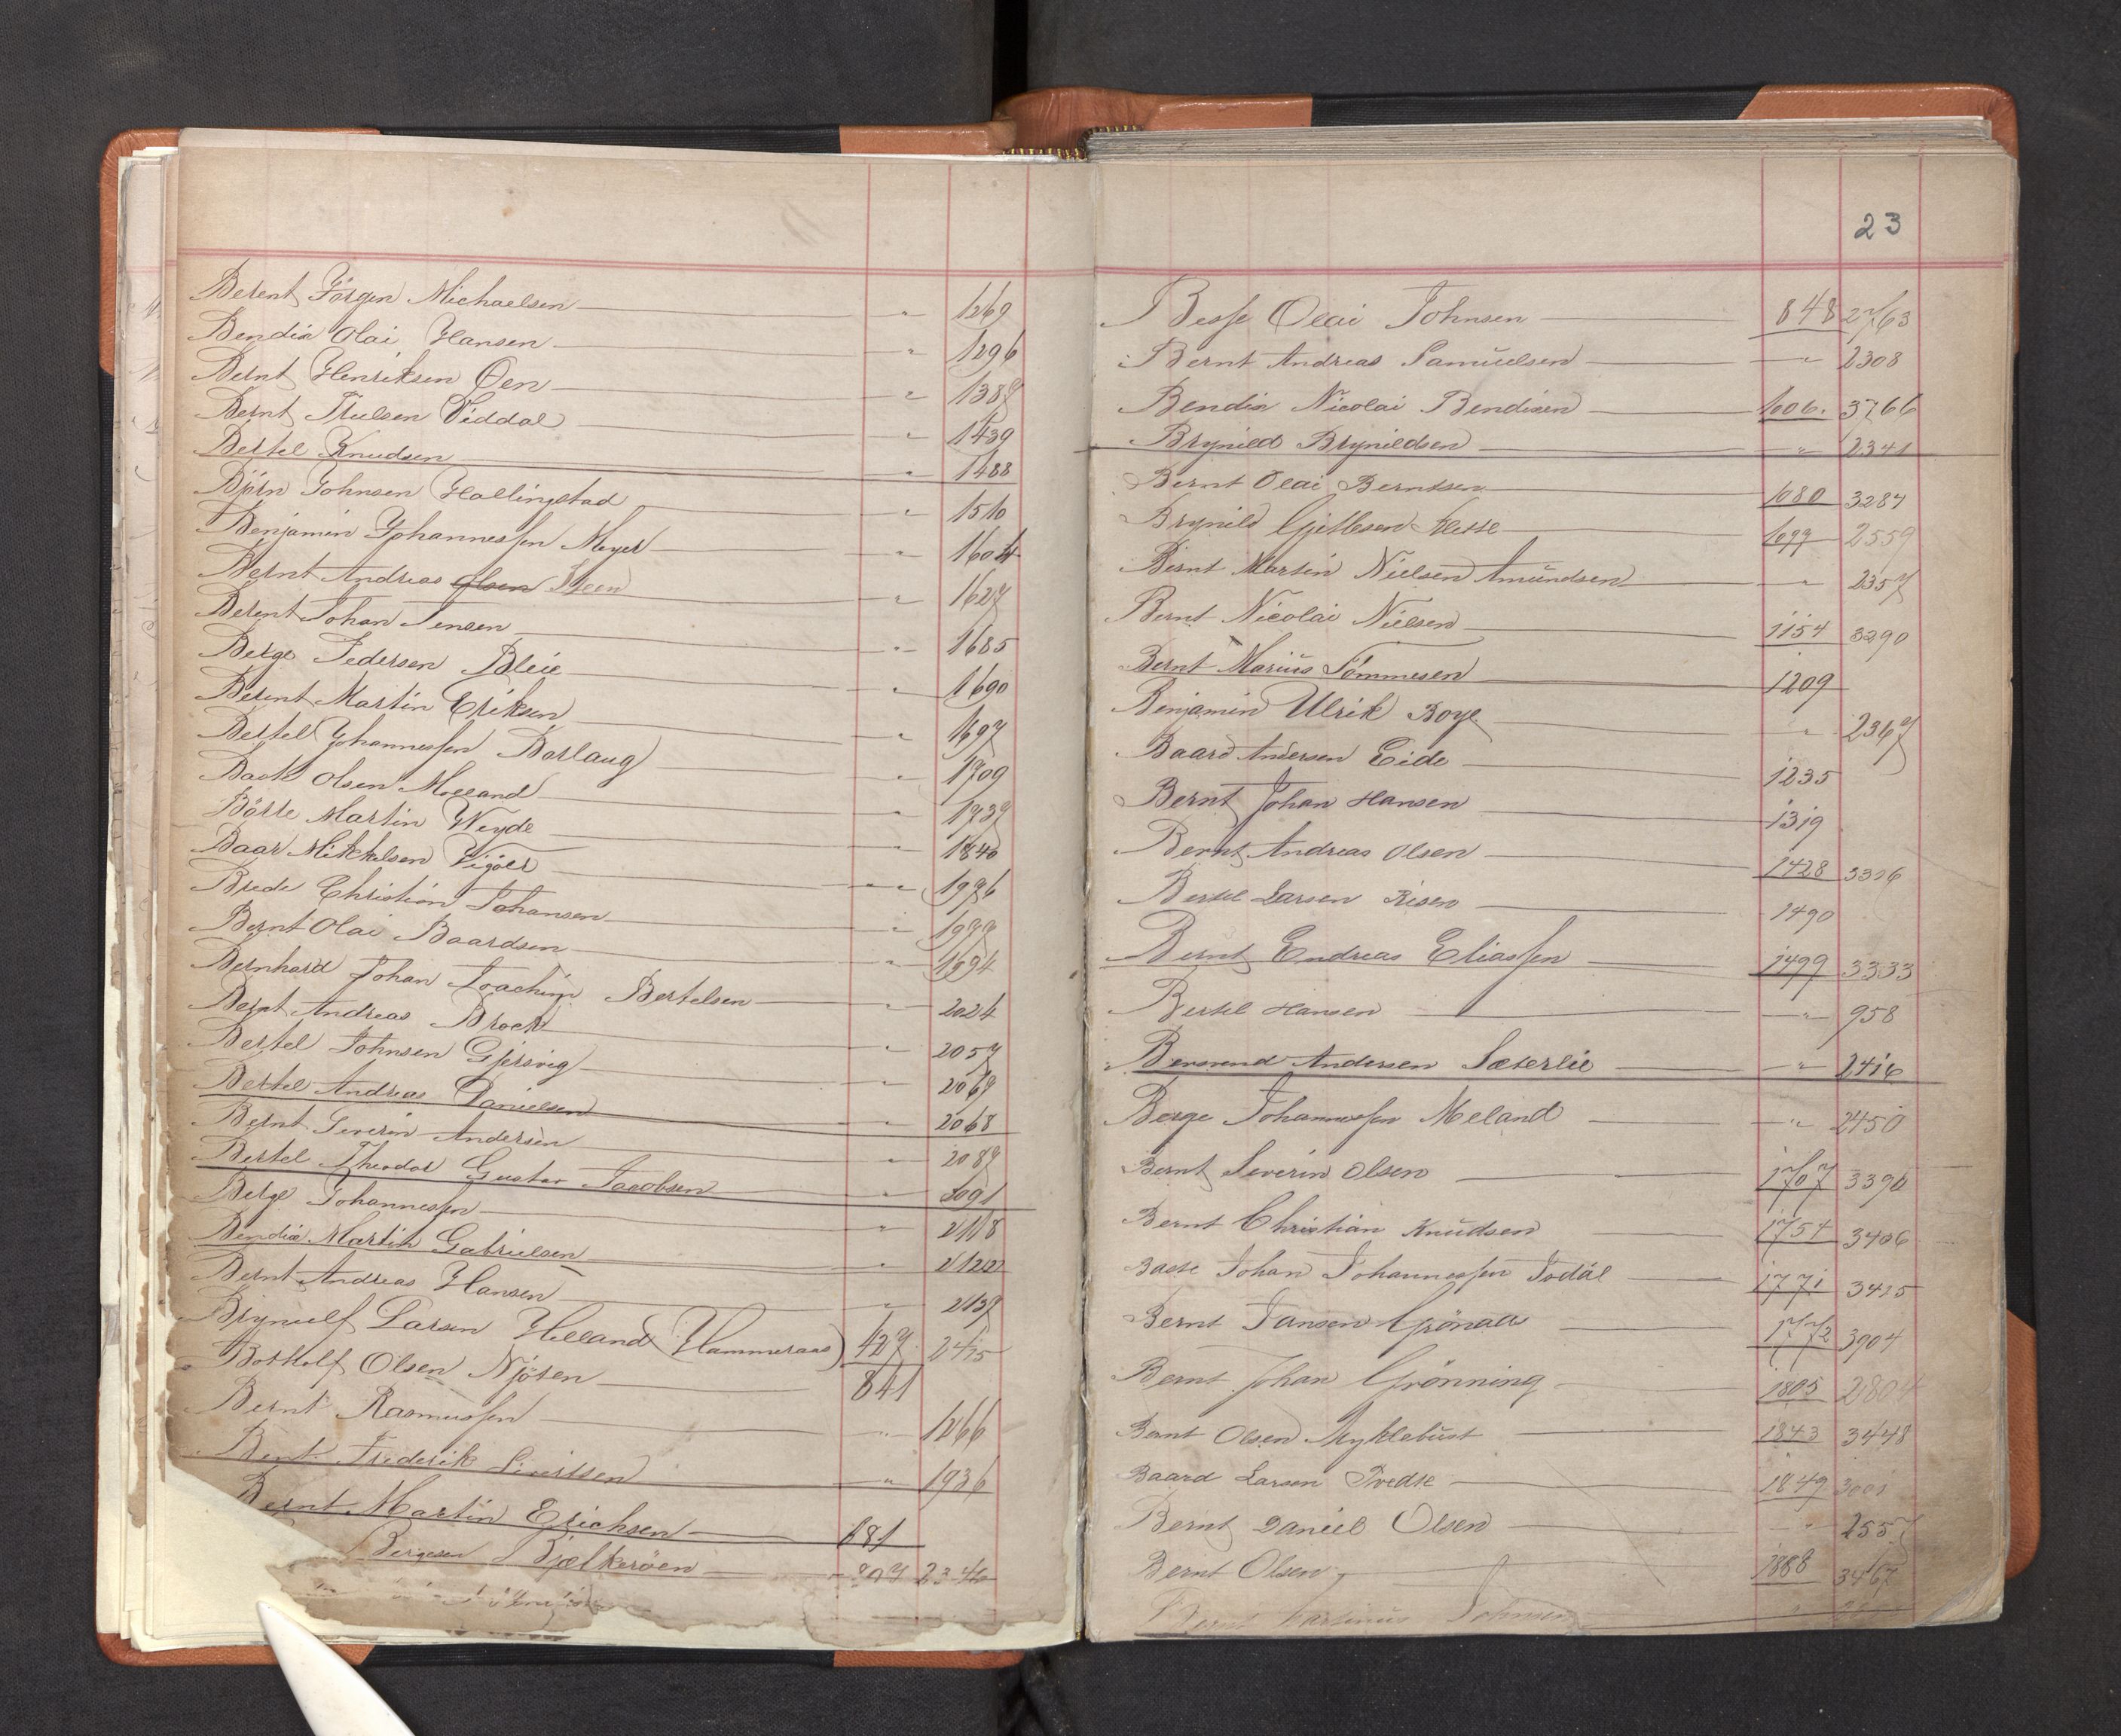 Berent Jörgen Michaelsen " 1269
Bendix Olai Hansen " 1296
Bernt Henriksen Öen " 1387
Bernt Trulsen Viddal " 1439
Bertel Knudsen " 1488
Björn Johnsen Hallingstad " 1510
Benjamin Johannessen Meyer " 1604
Bernt Andreas Olsen Steen " 1627
Berent Johan Jensen " 1685
Berge Pedersen Bleie " 1690
Berent Martin Eriksen " 1697
Bertel Johannessen Borlaug " 1709
Olsen Molland " 1737
Börre Martin Weyde " 1840
Baar Mikkelsen Vigöer " 1976
Brede Christian Johansen " 1977
Bernt Olai Baardsen " 1694
Bernhard Johan Joachim Bertelsen " 2024
Bernt Andreas Brock " 2057
Bertel Johnsen Gjersvig " 2067
Bertel Andreas Danielsen " 2068
Bernt Severin Andersen " 2087
Bertel Theodor Gustav Jacobsen " 2091
Berge Johannessen " 2118
Bendix Martin Gabrielsen " 2122
Bernt Andreas Hansen " 2137
Brynulf Larsen Helland (Hammeraas) 427 2415
Botholf Olsen Njöten 841
Bernt Rasmussen " 1266
Bernt Frederik Sivertsen " 1936
Bernt Martin Erichsen 681
Bergesen Bjelkeröen 807 2346
23
Besse Olai Johnsen 848 2763
Bernt Andreas Samuelsen " 2308
Bendix Nicolai Bendixen 1006. 3766
Brynild Brynildsen " 2341
Bernt Olai Berntsen 1080 3287
Brynild Gjillesen Mette 1099 2559
Bernt Martin Nielsen Amundsen " 2357
Bernt Nicolai Nielsen 1154 3290
Bernt Marius Tömmesen 1209
Benjamin Ulrik Boye " 2367
Baard Andersen Eide 1235
Bernt Johan Hansen 1319
Bernt Andreas Olsen 1428 3326
Bertel Larsen Risen 1490
Bernt Endreas Eliassen 1499 3333
Bertel Hansen " 958
Andersen Sæterlie " 2416
Berge Johannessen Meland " 2450
Bernt Severin Olsen 1707 3390
Bernt Christian Knudsen 1754 3406
Johan Johannessen 1771 3425
Bernt Jansen 1772 3904
Bernt Johan Grönning 1805 2804
Bernt Olsen Myklebust 1843 3448
Baard Larsen Tvedte 1849 3001
Bernt Daniel Olsen " 2557
Bernt Olsen 1888 3467
Bernt Martinus Johnsen "